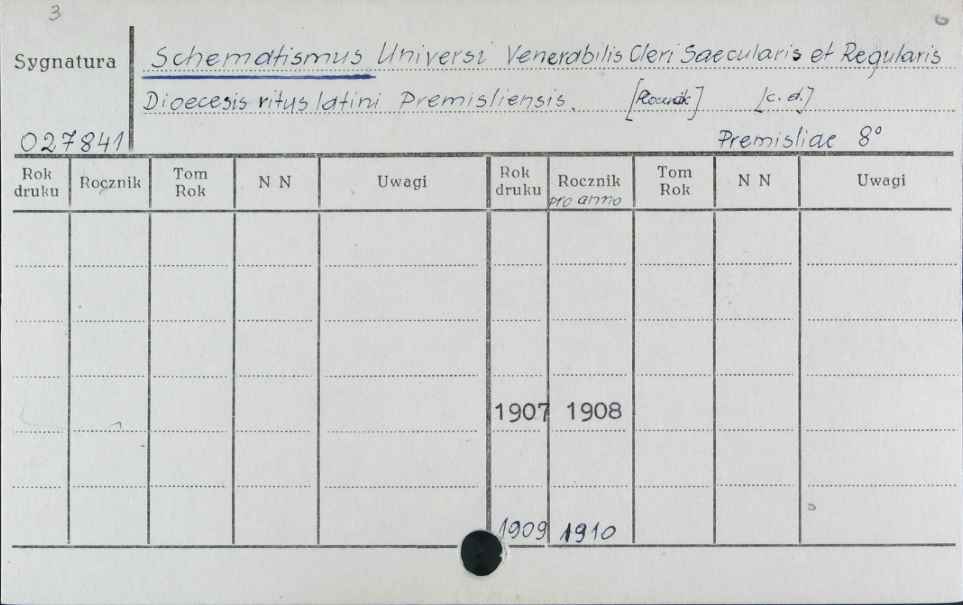 3 6
Sygnatura Schematismus Universi Venerabilis Cleri Saecularis et Regularis
Dioecesis ritus latini Premisliensis. [Rocznik] [c.d.]
027841 Premisliae 8°
Rok druku Rocznik Tom Rok N N Uwagi Rok druku Rocznik pro anno Tom Rok N N Uwagi
1907 1908
1909 1910